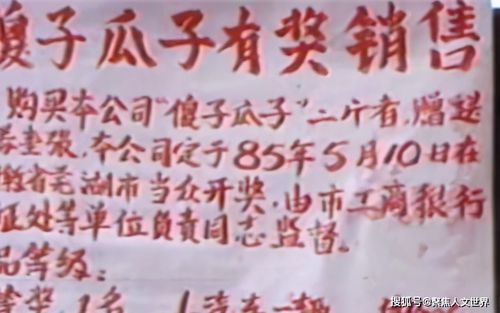 傻子瓜子有奖销售
购买本公司“傻子瓜子”二斤者,赠送
券壹张,本公司定于85年5月10日在
徽省芜湖市当众开奖,由市工商银行
证处等单位负责同志监督。
品等级:
等奖 1名
搜狐号@聚焦人文世界